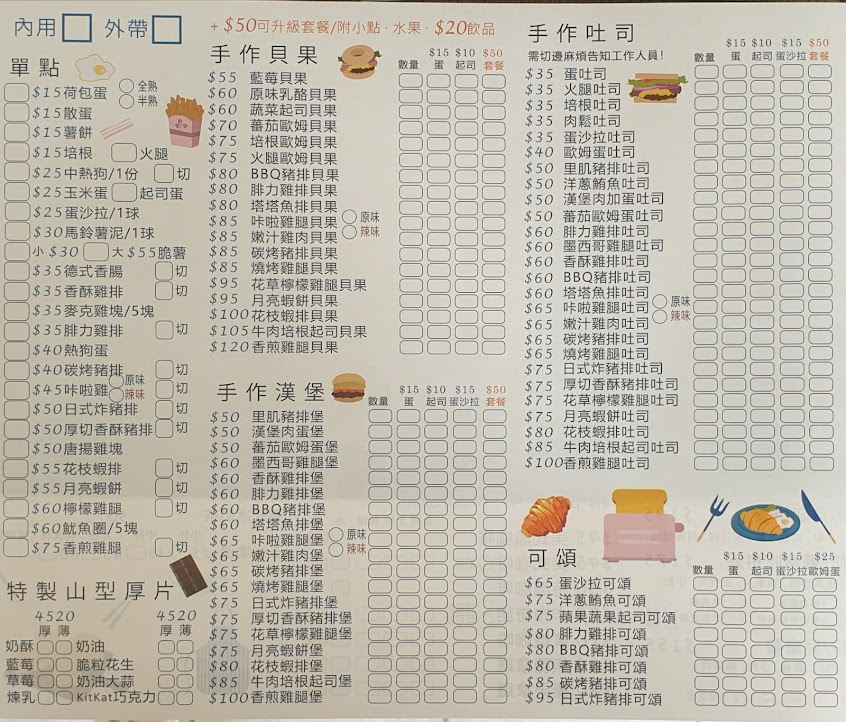 內用 外帶
單點
$15荷包蛋 全熟 半熟
$15散蛋
$15薯餅
$15培根 火腿
$25中熱狗/1份 切
$25玉米蛋 起司蛋
$25蛋沙拉/1球
$30馬鈴薯泥/1球
小 $30 大 $55脆薯
$35德式香腸 切
$35香酥雞排 切
$35麥克雞塊/5塊
$35腓力雞排 切
$40熱狗蛋
$40碳烤豬排 切
$45咔啦雞 原味 辣味 切
$50日式炸豬排 切
$50厚切香酥豬排 切
$50唐揚雞塊
$55花枝蝦排 切
$55月亮蝦餅 切
$60檸檬雞腿 切
$60魷魚圈/5塊
$75香煎雞腿 切
特製山型厚片
4520 4520
厚 薄 厚 薄
奶酥 奶油
藍莓 脆粒花生
草莓 奶油大蒜
煉乳 KitKat巧克力
+ $50可升級套餐/附小點、水果、$20飲品
手作貝果
$15 $10 $50
數量 蛋 起司 套餐
$55 藍莓貝果
$60 原味乳酪貝果
$60 蔬菜起司貝果
$70 蕃茄歐姆貝果
$75 培根歐姆貝果
$75 火腿歐姆貝果
$80 BBQ豬排貝果
$80 腓力雞排貝果
$80 塔塔魚排貝果
$85 咔啦雞腿貝果 原味
$85 嫩汁雞肉貝果 辣味
$85 碳烤豬排貝果
$85 燒烤雞腿貝果
$95 花草檸檬雞腿貝果
$95 月亮蝦餅貝果
$100花枝蝦排貝果
$105牛肉培根起司貝果
$120香煎雞腿貝果
手作漢堡
$15 $10 $15 $50
數量 蛋 起司 蛋沙拉 套餐
$50 里肌豬排堡
$50 漢堡肉蛋堡
$50 蕃茄歐姆蛋堡
$60 墨西哥雞腿堡
$60 香酥雞排堡
$60 腓力雞排堡
$60 BBQ豬排堡
$60 塔塔魚排堡
$65 咔啦雞腿堡 原味
$65 嫩汁雞肉堡 辣味
$65 碳烤豬排堡
$65 燒烤雞腿堡
$75 日式炸豬排堡
$75 厚切香酥豬排堡
$75 花草檸檬雞腿堡
$75 月亮蝦餅堡
$80 花枝蝦排堡
$85 牛肉培根起司堡
$100香煎雞腿堡
手作吐司
需切邊麻煩告知工作人員!
$15 $10 $15 $50
數量 蛋 起司 蛋沙拉 套餐
$35 蛋吐司
$35 火腿吐司
$35 培根吐司
$35 肉鬆吐司
$35 蛋沙拉吐司
$40 歐姆蛋吐司
$50 里肌豬排吐司
$50 洋蔥鮪魚吐司
$50 漢堡肉加蛋吐司
$50 蕃茄歐姆蛋吐司
$60 腓力雞排吐司
$60 墨西哥雞腿吐司
$60 香酥雞排吐司
$60 BBQ豬排吐司
$60 塔塔魚排吐司
$65 咔啦雞腿吐司 原味
$65 嫩汁雞肉吐司 辣味
$65 碳烤豬排吐司
$65 燒烤雞腿吐司
$75 日式炸豬排吐司
$75 厚切香酥豬排吐司
$75 花草檸檬雞腿吐司
$75 月亮蝦餅吐司
$80 花枝蝦排吐司
$85 牛肉培根起司吐司
$100香煎雞腿吐司
可頌
$15 $10 $15 $25
數量 蛋 起司 蛋沙拉 歐姆蛋
$65 蛋沙拉可頌
$75 洋蔥鮪魚可頌
$75 蘋果蔬果起司可頌
$80 腓力雞排可頌
$80 BBQ豬排可頌
$80 香酥雞排可頌
$85 碳烤豬排可頌
$95 日式炸豬排可頌